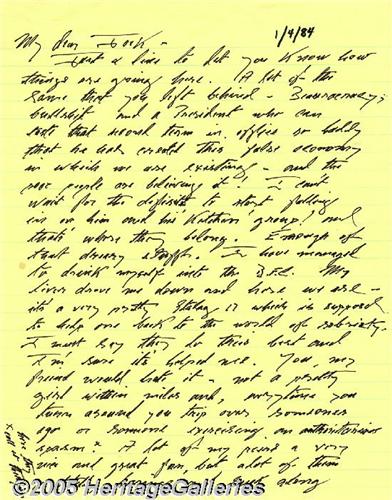 1/4/84
My dear Jock -
Just a line to let you know how
things are going here. A lot of the
same that you left behind - Beaurocracy;
bullshit and a President who can
that second term in office so badly
that he has created this false economy
in which we are existing - and the
people are believing it! I can't
wait for the deficits to start falling
in on him and his 'Kitchen' group! and
that's where they belong. Enough of
that dreary stuff. I have managed
to drink myself into the B.F.C. My
liver drove me down and here we are -
it's a very pretty Stalag 17 which is supposed
to help one back to the world of sobriety.
I must say they do their best and
I'm sure it's helped me. You, my
friend would hate it - not a pretty
girl within miles and, everytime you
turn around you trip over someones
ego or someone exercising an authoritarian
spasm! A lot of my peers a very
nice and great fun, but alot of them
along
©2005 HeritageGalleries